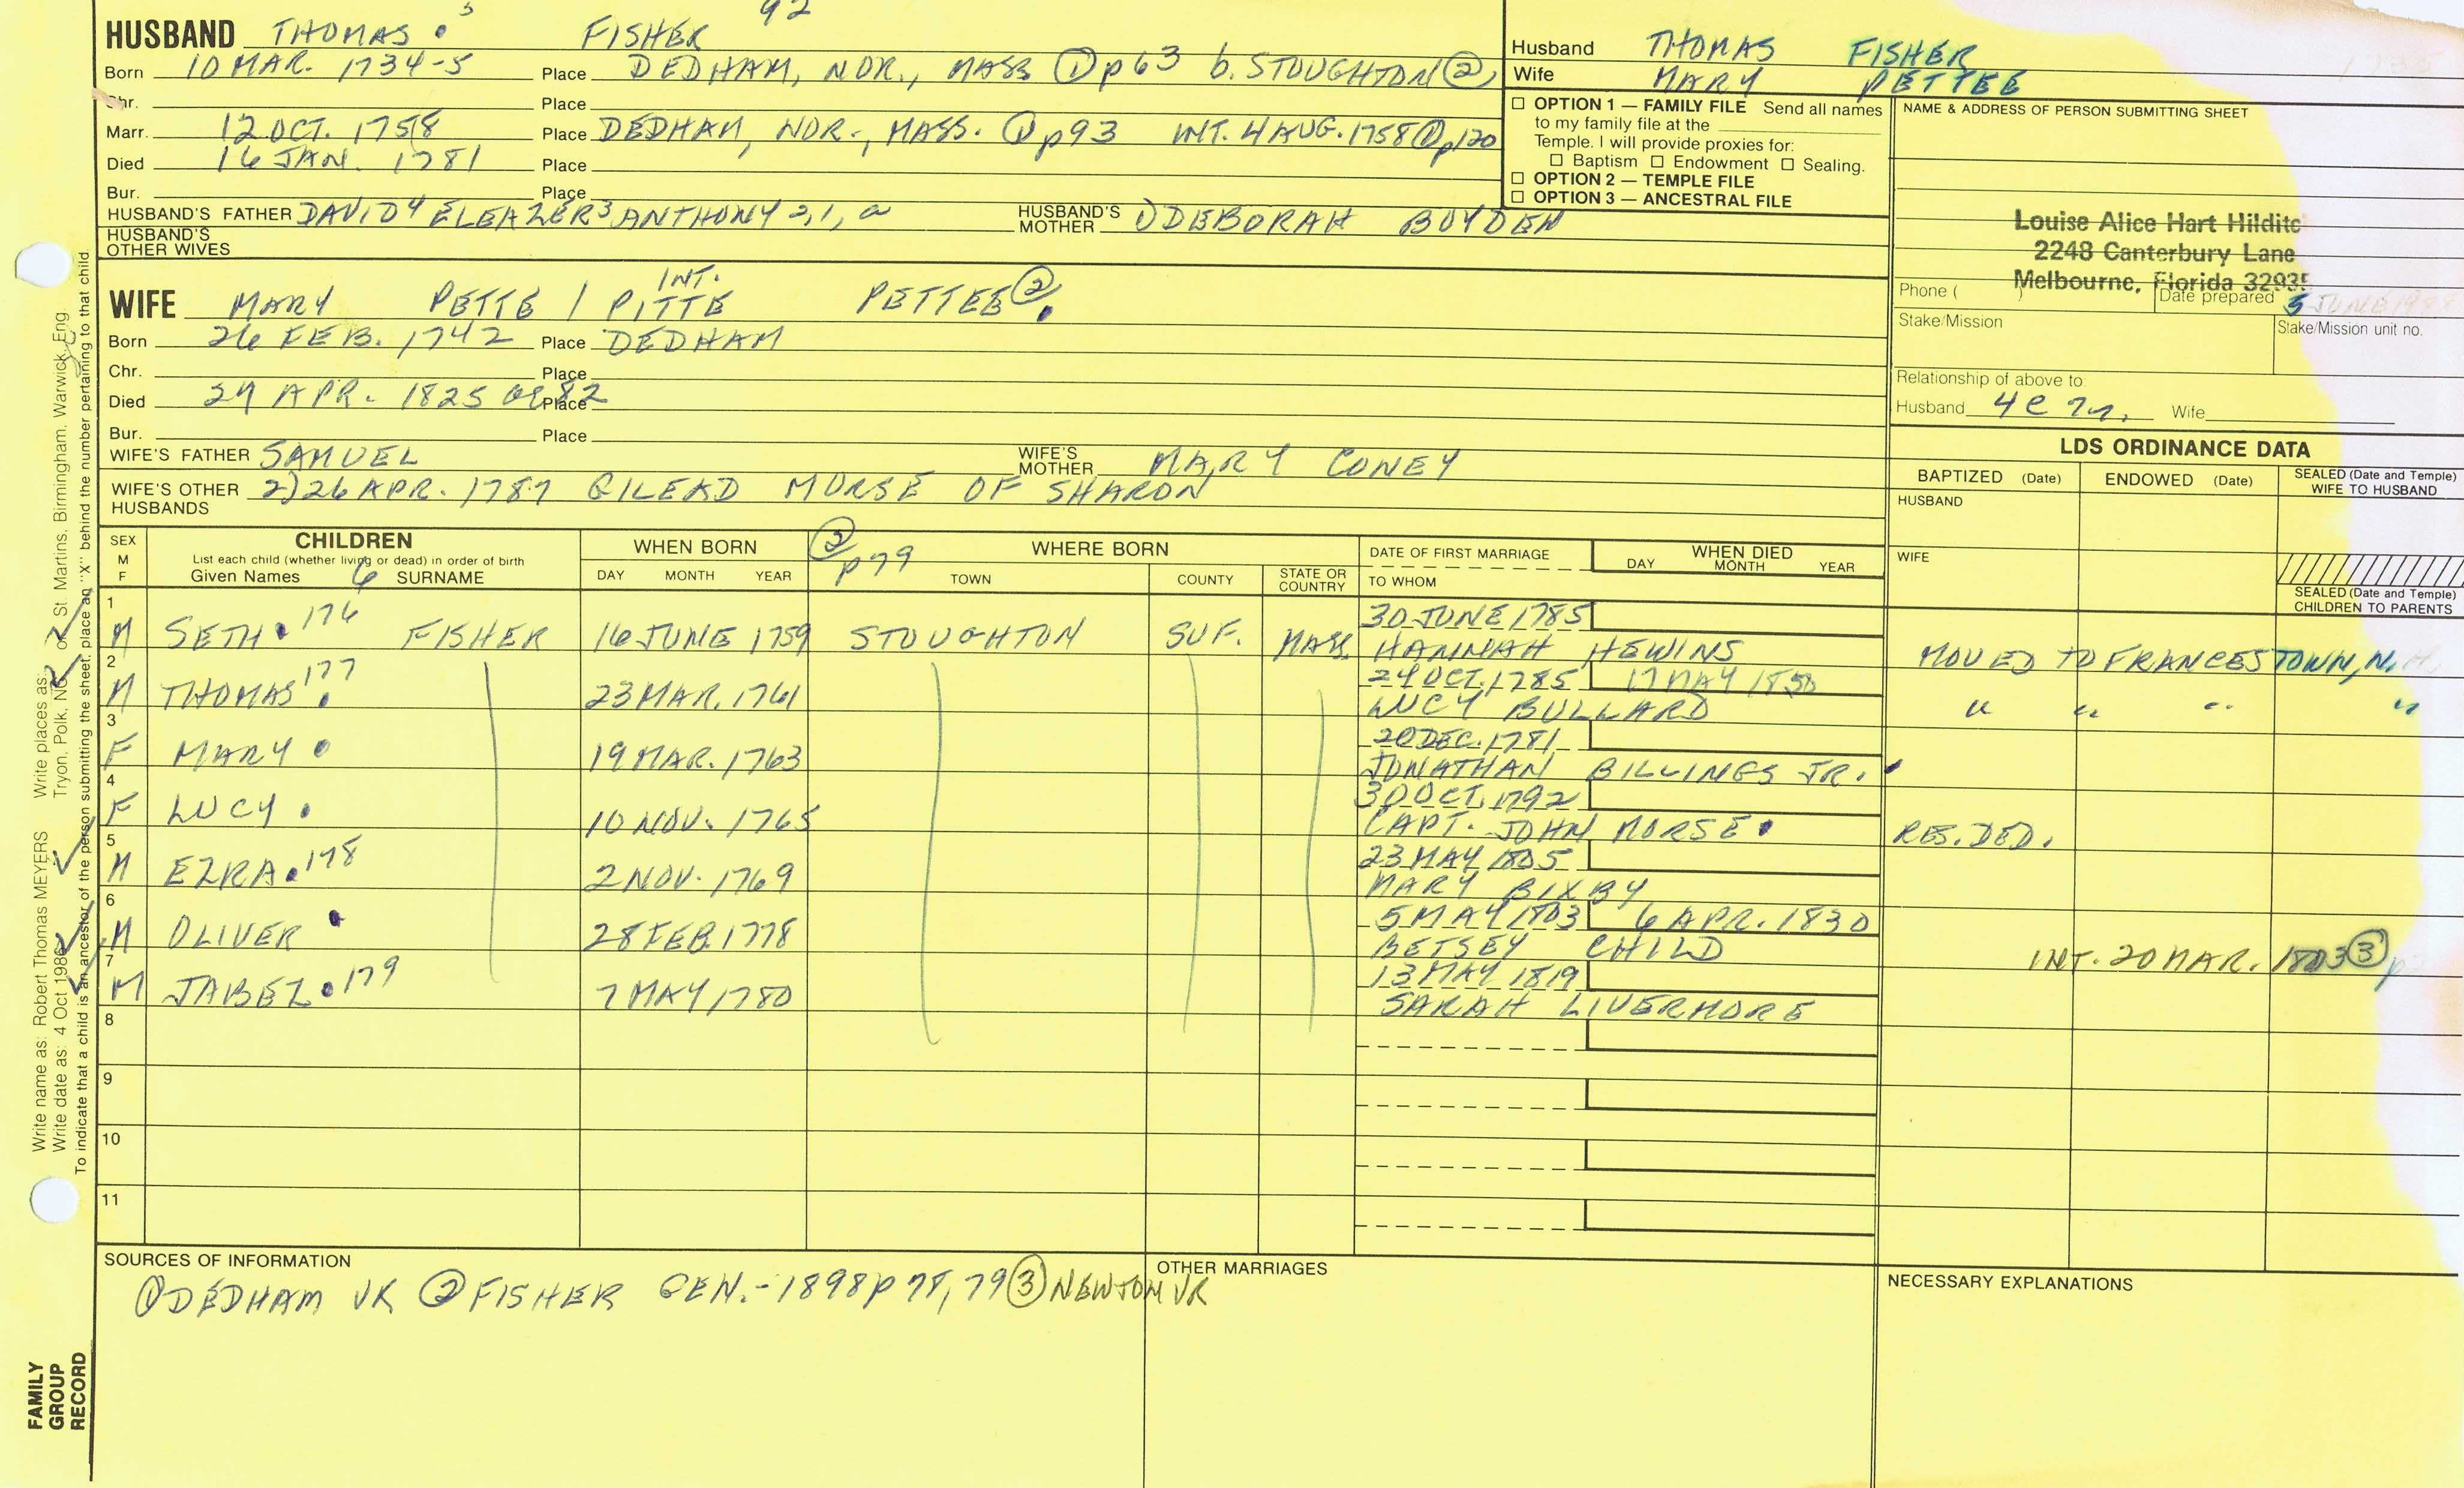 92
HUSBAND THOMAS 5 FISHER
Born 10 MAR. 1734-5 Place DEDHAM, NOR., MASS ① p63 b. STOUGHTON ②
Chr. Place
Marr. 12 OCT. 1758 Place DEDHAM, NOR., MASS. ① p93 INT. 4 AUG. 1758 ① p120
Died 16 JAN. 1781 Place
Bur. Place
HUSBAND'S FATHER DAVID 4 ELEAZER 3 ANTHONY 2, 1, a HUSBAND'S MOTHER DEBORAH BOYDEN
HUSBAND'S OTHER WIVES
Husband THOMAS FISHER
Wife MARY PETTEE
☐ OPTION 1 — FAMILY FILE Send all names
to my family file at the
Temple. I will provide proxies for:
☐ Baptism ☐ Endowment ☐ Sealing.
☐ OPTION 2 — TEMPLE FILE
☐ OPTION 3 — ANCESTRAL FILE
NAME & ADDRESS OF PERSON SUBMITTING SHEET
Louise Alice Hart Hilditc
2248 Canterbury Lane
Melbourne, Florida 32935
Phone ( ) Date prepared 5 JUNE
Stake/Mission Stake/Mission unit no.
Relationship of above to:
Husband 4 C Wife
INT.
WIFE MARY PETTE / PITTE PETTEE ②
Born 26 FEB. 1742 Place DEDHAM
Chr. Place
Died 29 APR. 1825 ae 82 Place
Bur. Place
WIFE'S FATHER SAMUEL WIFE'S MOTHER MARY CONEY
WIFE'S OTHER HUSBANDS 2) 26 APR. 1787 GILEAD MORSE OF SHARON
LDS ORDINANCE DATA
BAPTIZED (Date) ENDOWED (Date) SEALED (Date and Temple) WIFE TO HUSBAND
HUSBAND
WIFE
SEALED (Date and Temple) CHILDREN TO PARENTS
SEX M F CHILDREN
List each child (whether living or dead) in order of birth
Given Names 6 SURNAME
WHEN BORN DAY MONTH YEAR
② p79 WHERE BORN TOWN COUNTY STATE OR COUNTRY
DATE OF FIRST MARRIAGE TO WHOM
WHEN DIED DAY MONTH YEAR
1 M SETH 176 FISHER 16 JUNE 1759 STOUGHTON SUF. MASS. 30 JUNE 1785
HANNAH HEWINS MOVED TO FRANCESTOWN, N.H.
2 M THOMAS 177 23 MAR. 1761 24 OCT. 1785 17 MAY 1850
LUCY BULLARD " " " "
3 F MARY 19 MAR. 1763 20 DEC. 1781
JONATHAN BILLINGS JR.
4 F LUCY 10 NOV. 1765 30 OCT. 1792
CAPT. JOHN MORSE RES. DED.
5 M EZRA 178 2 NOV. 1769 23 MAY 1805
MARY BIXBY
6 M OLIVER 28 FEB. 1778 5 MAY 1803 6 APR. 1830
BETSEY CHILD INT. 20 MAR. 1803 ③ p
7 M JABEZ 179 7 MAY 1780 13 MAY 1819
SARAH LIVERMORE
8
9
10
11
SOURCES OF INFORMATION
① DEDHAM VR ② FISHER GEN.-1898 p 78, 79 ③ NEWTON VR
OTHER MARRIAGES
NECESSARY EXPLANATIONS
Write name as: Robert Thomas MEYERS Write places as: Tryon, Polk, NC or St. Martins, Birmingham, Warwick, Eng
Write date as: 4 Oct 1986
To indicate that a child is an ancestor of the person submitting the sheet, place an "X" behind the number pertaining to that child.
FAMILY
GROUP
RECORD